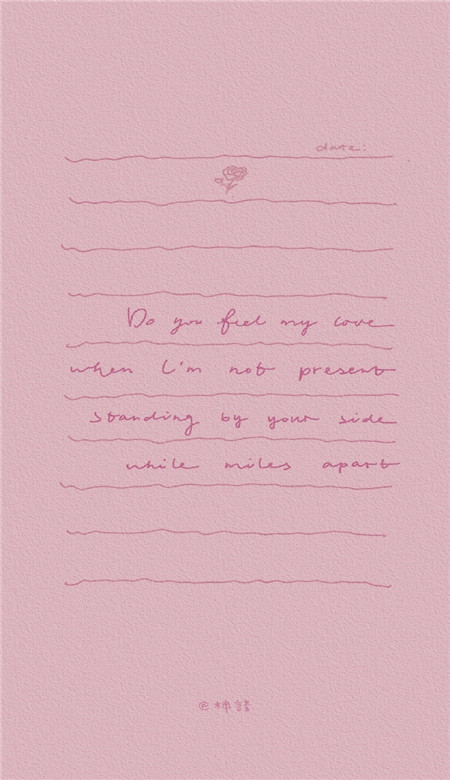 date:
Do you feel my love
when I'm not present
standing by your side
while miles apart